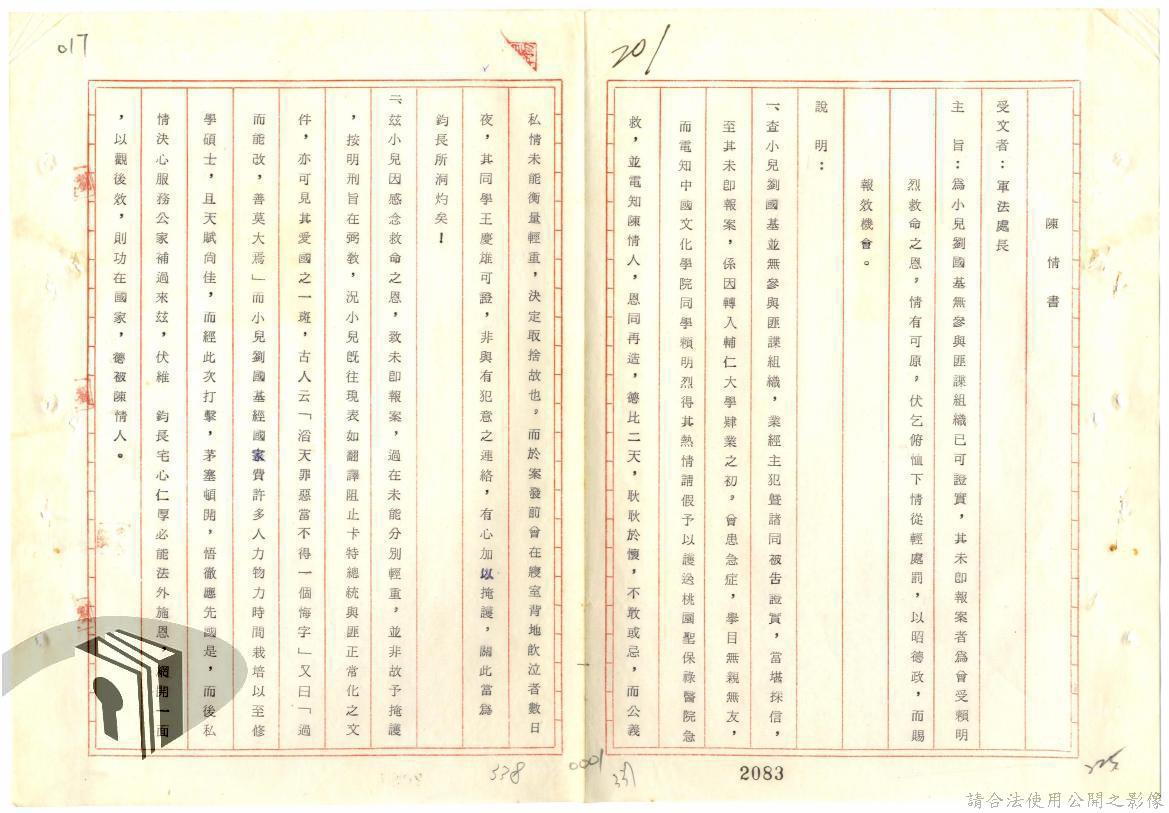 017
201
陳情書
受文者：軍法處長
主旨：為小兒劉國基無參與匪諜組織已可證實，其未卽報案者為曾受賴明
烈救命之恩，情有可原，伏乞俯恤下情從輕處罰，以昭德政，而賜
報效機會。
說明：
一、查小兒劉國基並無參與匪諜組織，業經主犯暨諸同被告證實，當堪採信，
至其未卽報案，係因轉入輔仁大學肄業之初，曾患急症，舉目無親無友，
而電知中國文化學院同學賴明烈得其熱情請假予以護送桃園聖保祿醫院急
救，並電知陳情人，恩同再造，德比二天，耿耿於懷，不敢或忌，而公義
私情未能衡量輕重，決定取捨故也，而於案發前曾在寢室背地飲泣者數日
夜，其同學王慶雄可證，非與有犯意之連絡，有心加以掩護，關此當為
鈞長所洞灼矣！
二、玆小兒因感念救命之恩，致未卽報案，過在未能分別輕重，並非故予掩護
，按明刑旨在弼敎，況小兒旣往現表如翻譯阻止卡特總統與匪正常化之文
件，亦可見其愛國之一斑，古人云「滔天罪惡當不得一個悔字」又曰「過
而能改，善莫大焉」而小兒劉國基經國家費許多人力物力時間栽培以至修
學碩士，且天賦尚佳，而經此次打擊，茅塞頓開，悟徹應先國是，而後私
情決心服務公家補過來玆，伏維　鈞長宅心仁厚必能法外施恩，網開一面
，以觀後效，則功在國家，德被陳情人。
338
0001
331
2083
325
請合法使用公開之影像